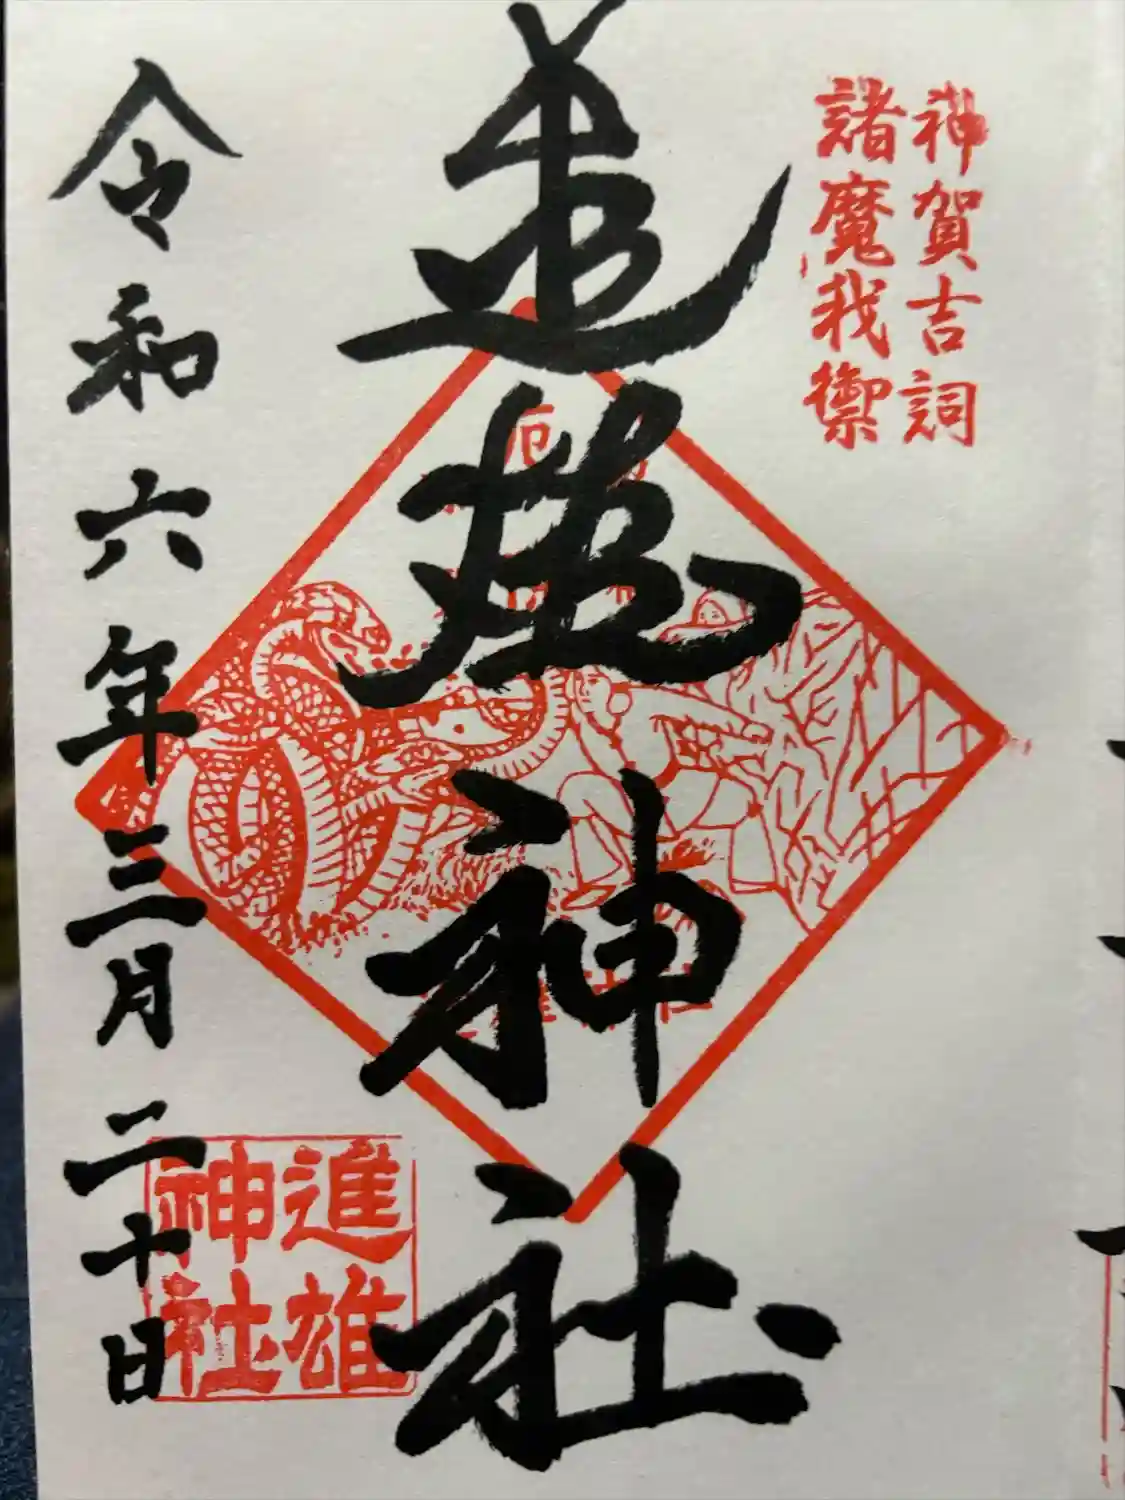 神賀吉詞
諸魔我禦
進雄神社
厄
神社
進雄
神社
令和六年三月二十日